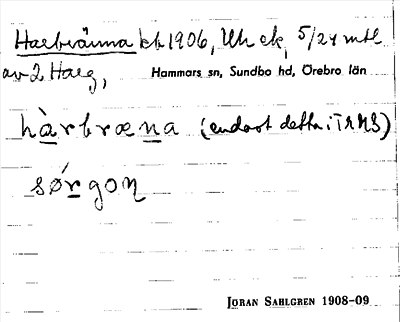 Harbränna kb 1906, Uh ek, 5/24 mtl
av 2 Harg, Hammars sn, Sundbo hd, Örebro län
hàrbræna (endast detta i TRHS)
sǿrgon
JORAN SAHLGREN 1908-09